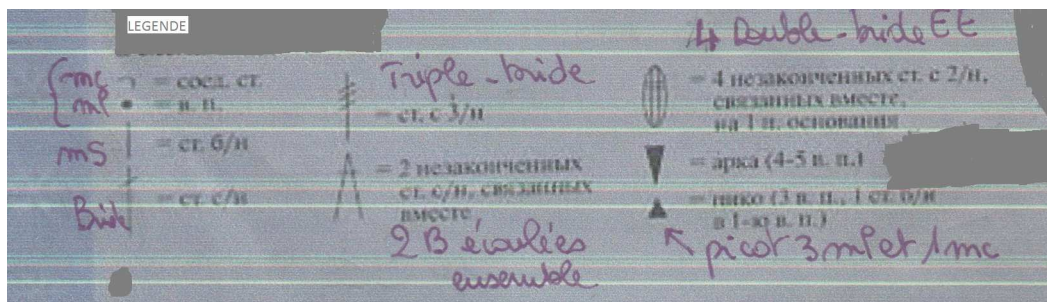 LEGENDE
mc = соед. ст.
ml = в. п.
mS = ст. б/н
Bride = ст. с/н
Triple-bride
= ст. с 3/н
= 2 незаконченных
ст. с/н, связанных
вместе
2 B écoulées
ensemble
4 Double-bride EE
= 4 незаконченных ст. с 2/н,
связанных вместе,
на 1 п. основания
= арка (4-5 в. п.)
= пико (3 в. п., 1 ст. б/н
в 1-ю в. п.)
picot 3 ml et 1 mc